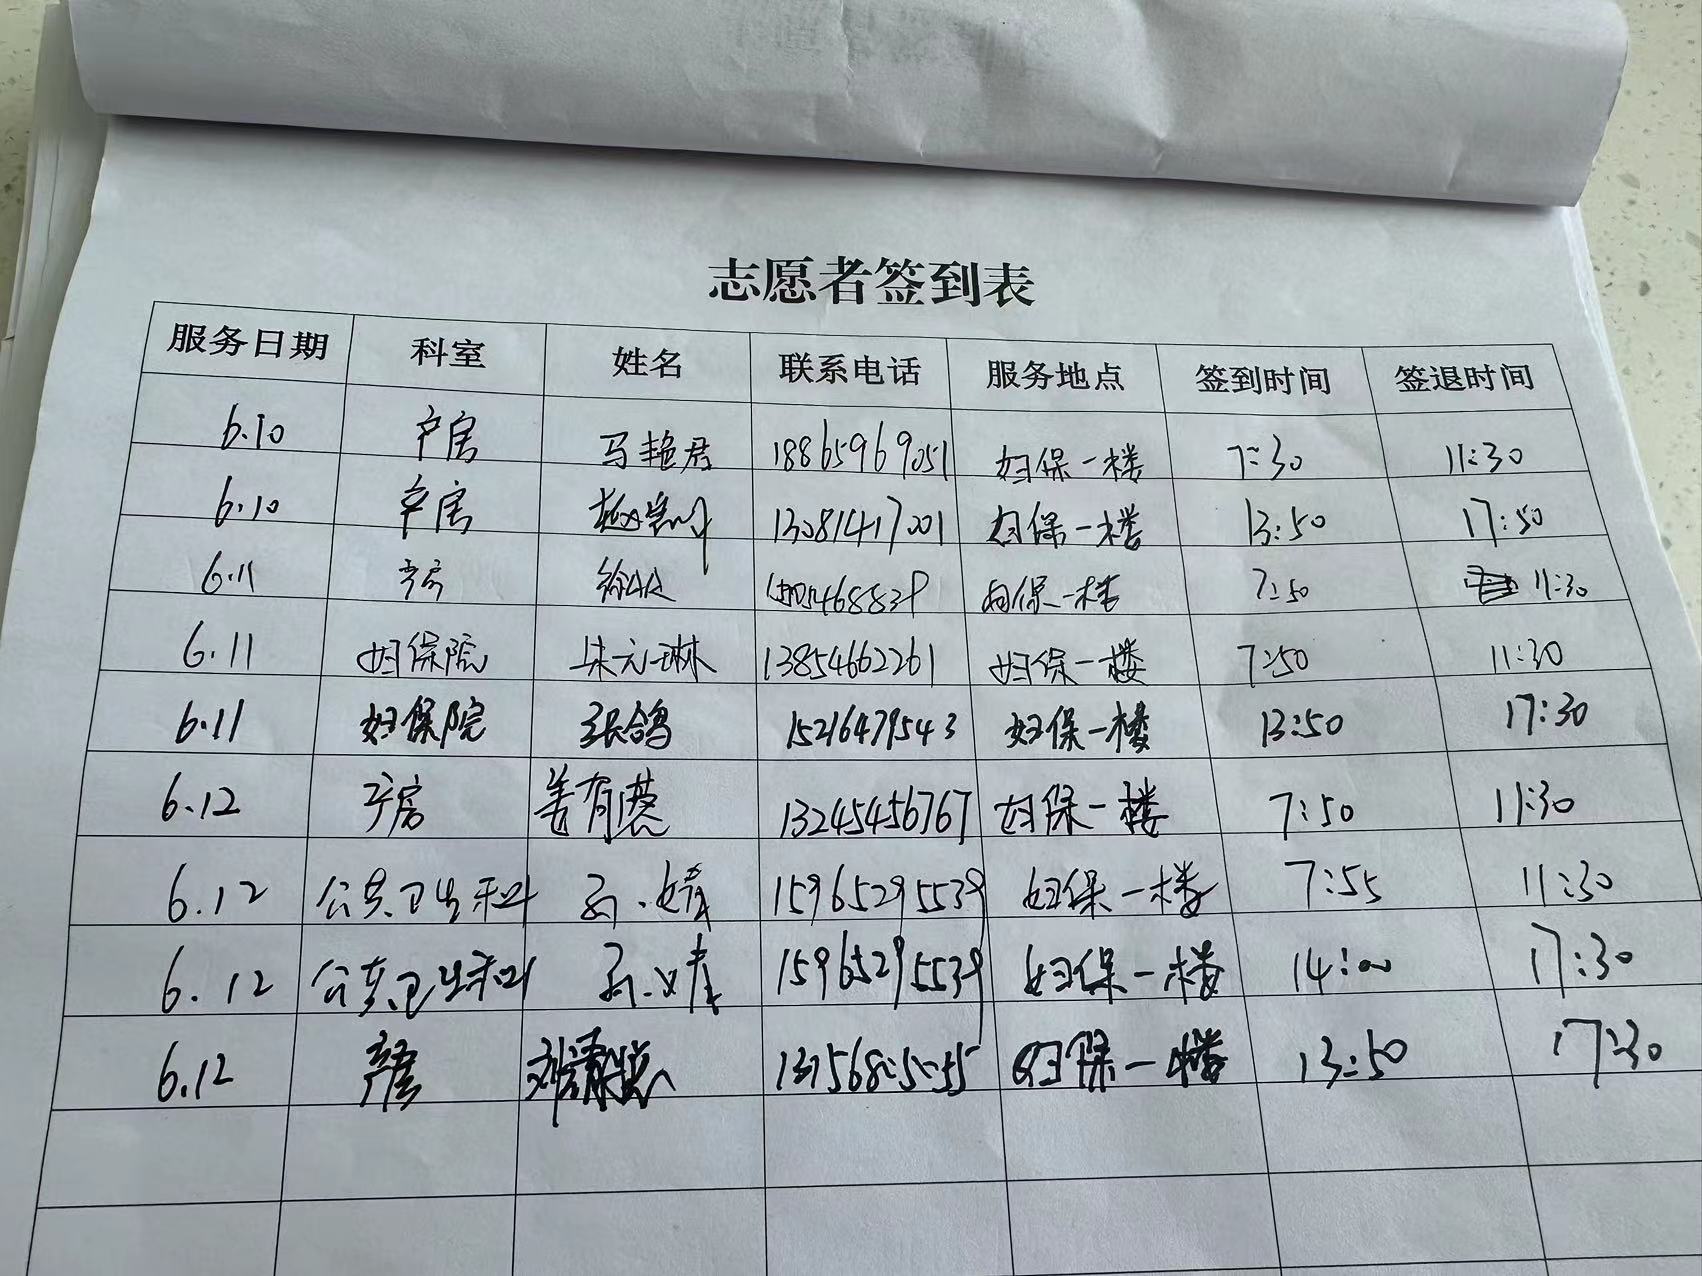 志愿者签到表
服务日期 科室 姓名 联系电话 服务地点 签到时间 签退时间
6.10 产房 马艳君 18865969051 妇保一楼 7:30 11:30
6.10 产房 13081417001 妇保一楼 13:50 17:50
6.11 产房 妇保一楼 7:50 11:30
6.11 妇保院 朱元琳 13854662261 妇保一楼 7:50 11:30
6.11 妇保院 张鸽 15216479543 妇保一楼 13:50 17:30
6.12 产房 姜有慧 13245456767 妇保一楼 7:50 11:30
6.12 公共卫生科 孙婧 15965295539 妇保一楼 7:55 11:30
6.12 公共卫生科 孙婧 15965295539 妇保一楼 14:00 17:30
6.12 产房 妇保一楼 13:50 17:30